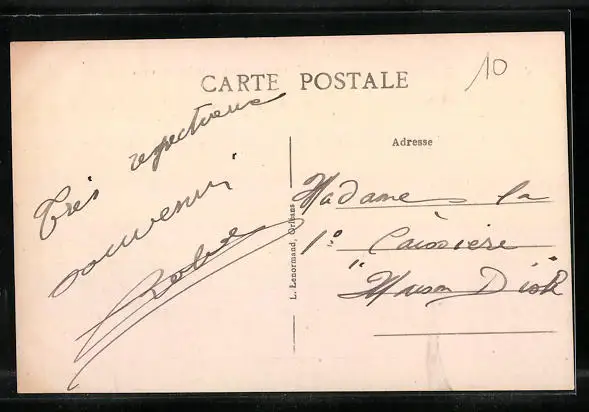 CARTE POSTALE
10
Très respectueux
souvenir
Adresse
Madame la
1º Caissière
"Maison
L. Lenormand, Orléans